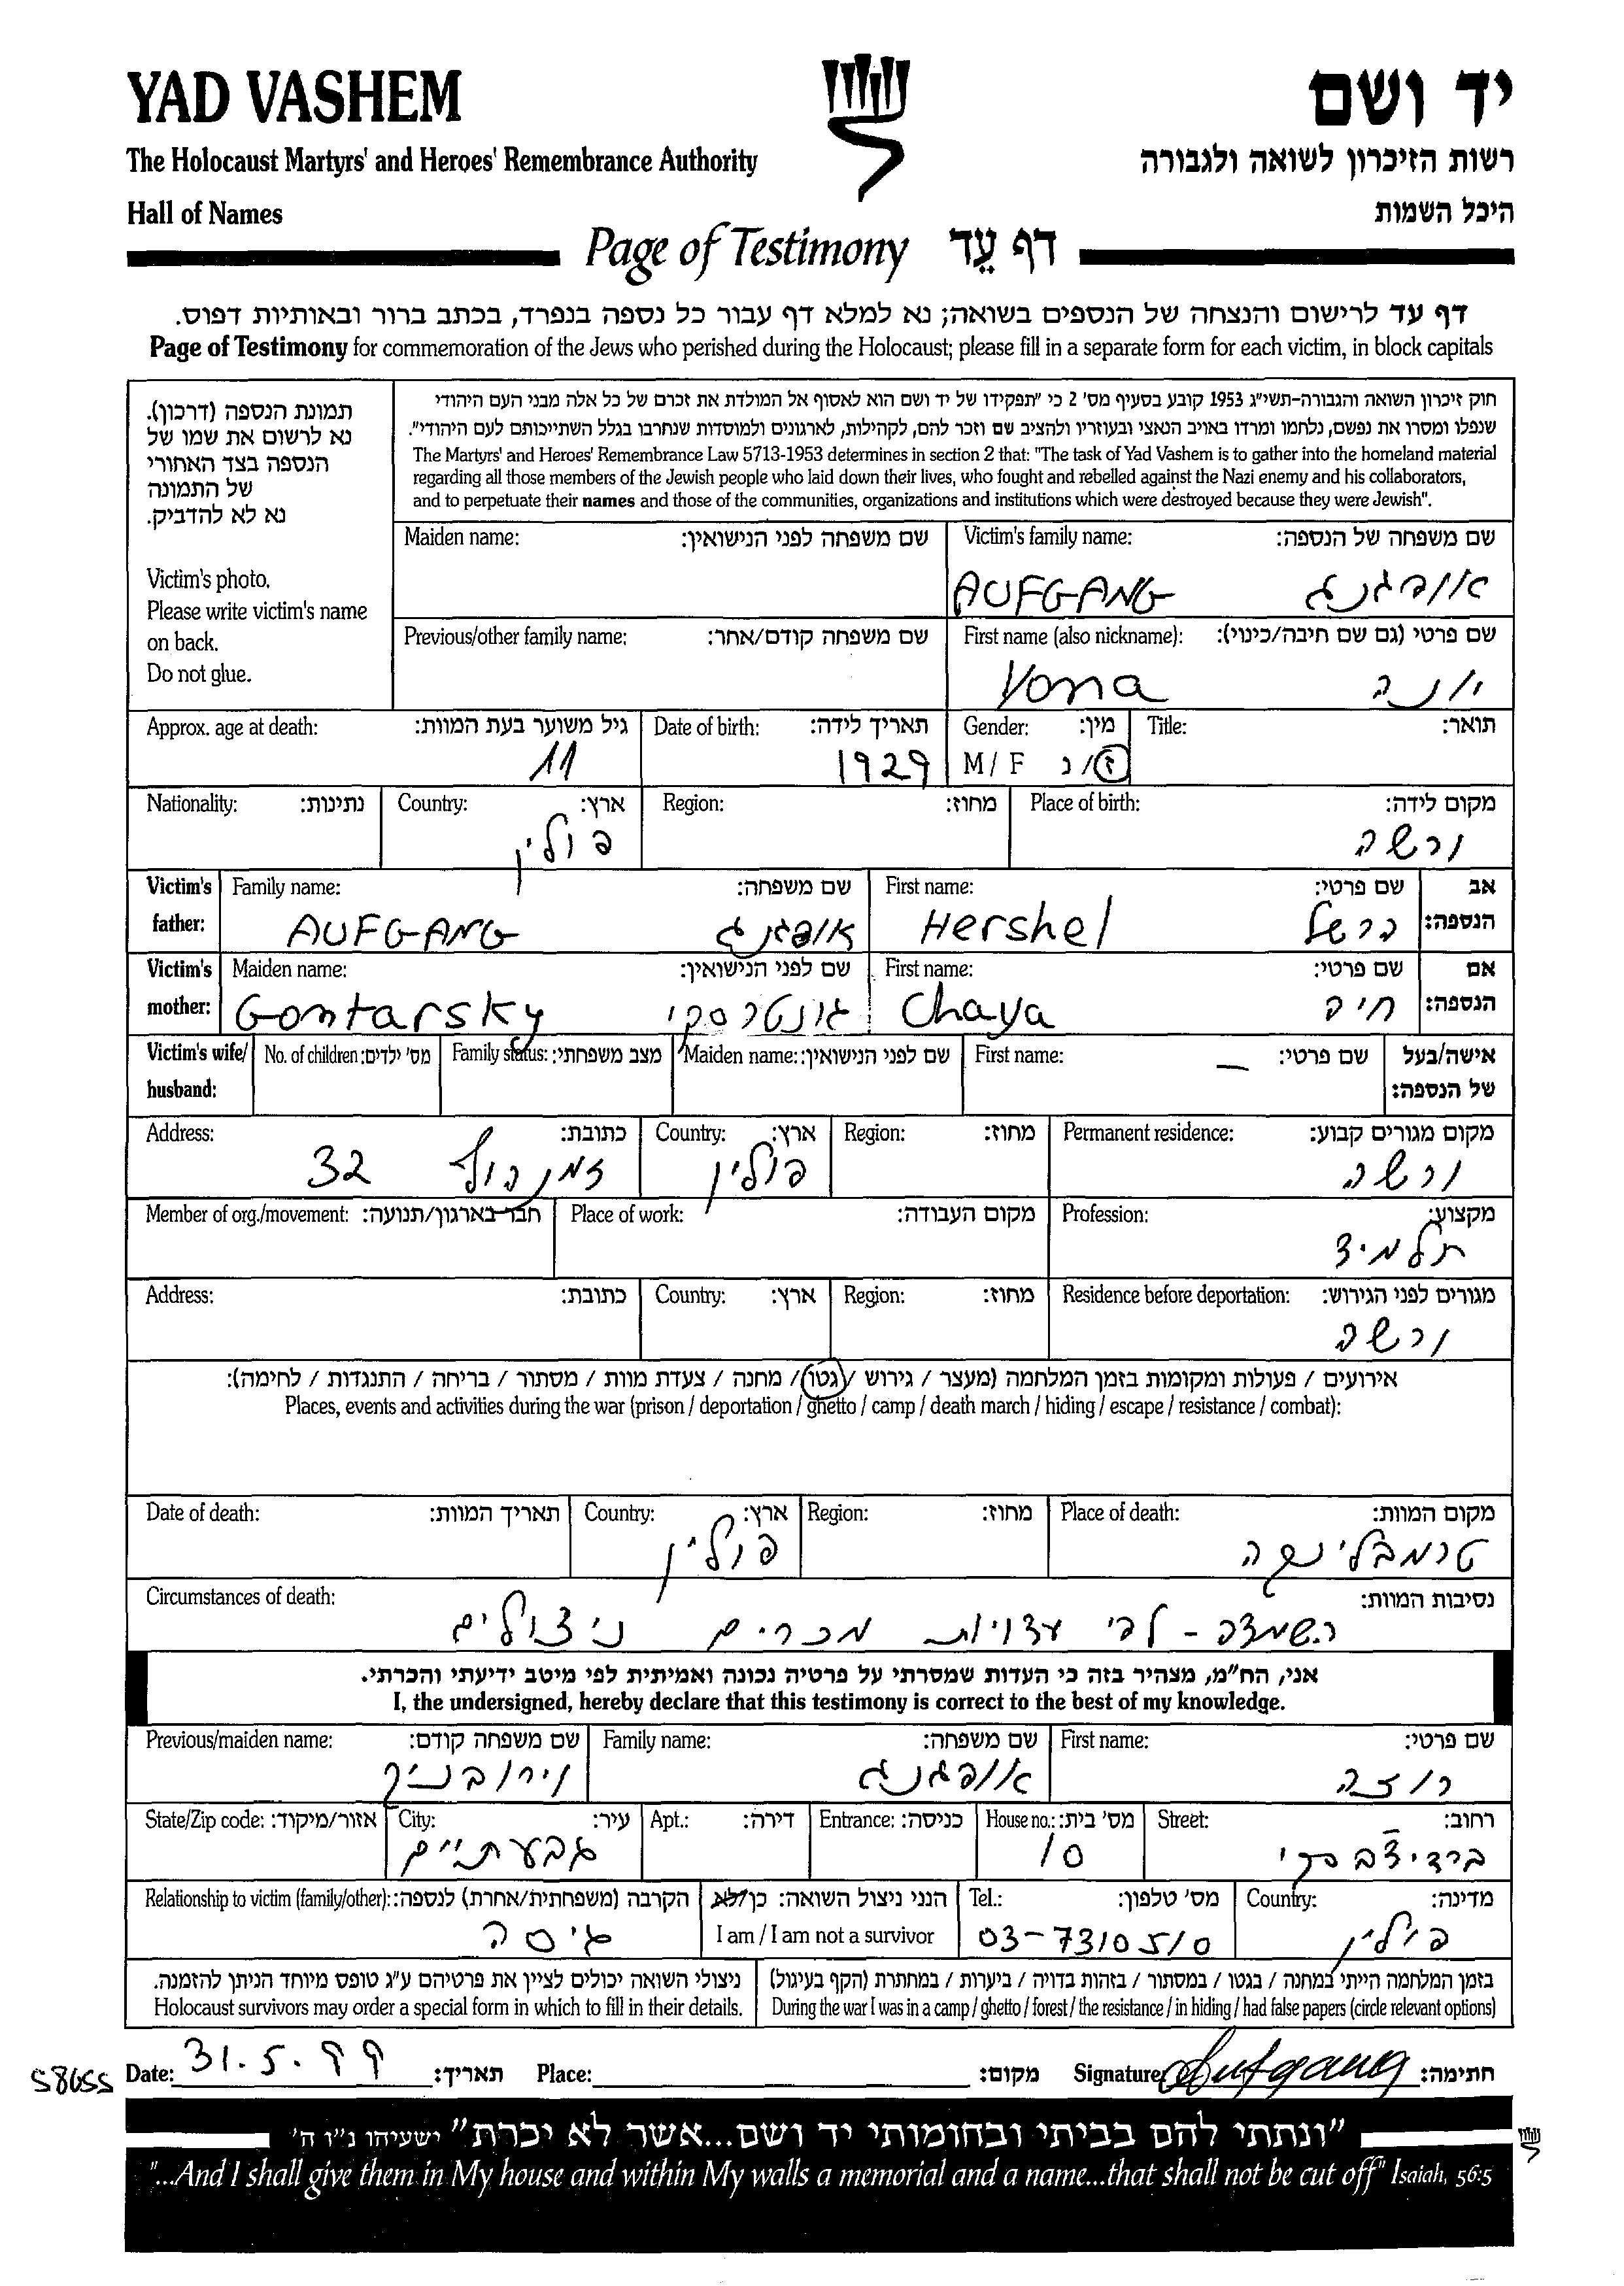 YAD VASHEM יד ושם
The Holocaust Martyrs' and Heroes' Remembrance Authority רשות הזיכרון לשואה ולגבורה
Hall of Names היכל השמות
Page of Testimony דף עֵד
דף עד לרישום והנצחה של הנספים בשואה; נא למלא דף עבור כל נספה בנפרד, בכתב ברור ובאותיות דפוס.
Page of Testimony for commemoration of the Jews who perished during the Holocaust; please fill in a separate form for each victim, in block capitals
תמונת הנספה (דרכון).
נא לרשום את שמו של
הנספה בצד האחורי
של התמונה
נא לא להדביק.
Victim's photo.
Please write victim's name
on back.
Do not glue.
חוק זיכרון השואה והגבורה-תשי"ג 1953 קובע בסעיף מס' 2 כי "תפקידו של יד ושם הוא לאסוף אל המולדת את זכרם של כל אלה מבני העם היהודי
שנפלו ומסרו את נפשם, נלחמו ומרדו באויב הנאצי ובעוזריו ולהציב שם וזכר להם, לקהילות, לארגונים ולמוסדות שנחרבו בגלל השתייכותם לעם היהודי".
The Martyrs' and Heroes' Remembrance Law 5713-1953 determines in section 2 that: "The task of Yad Vashem is to gather into the homeland material
regarding all those members of the Jewish people who laid down their lives, who fought and rebelled against the Nazi enemy and his collaborators,
and to perpetuate their names and those of the communities, organizations and institutions which were destroyed because they were Jewish".
Maiden name: שם משפחה לפני הנישואין: Victim's family name: שם משפחה של הנספה:
AUFGANG אופגנג
Previous/other family name: שם משפחה קודם/אחר: First name (also nickname): שם פרטי (גם שם חיבה/כינוי):
Yona יונה
Approx. age at death: גיל משוער בעת המוות: Date of birth: תאריך לידה: Gender: מין: Title: תואר:
11 1929 M / F ז/נ
Nationality: נתינות: Country: ארץ: Region: מחוז: Place of birth: מקום לידה:
פולין ורשה
Victim's Family name: שם משפחה: First name: שם פרטי: אב
father: AUFGANG אופגנג Hershel הרשל הנספה:
Victim's Maiden name: שם לפני הנישואין: First name: שם פרטי: אם
mother: Gontarsky גונטרסקי Chaya חיה הנספה:
Victim's wife/ No. of children: מס' ילדים: Family status: מצב משפחתי: Maiden name: שם לפני הנישואין: First name: שם פרטי: אישה/בעל
husband: — של הנספה:
Address: כתובת: Country: ארץ: Region: מחוז: Permanent residence: מקום מגורים קבוע:
זמנהוף 32 פולין ורשה
Member of org./movement: חבר בארגון/תנועה: Place of work: מקום העבודה: Profession: מקצוע:
תלמיד
Address: כתובת: Country: ארץ: Region: מחוז: Residence before deportation: מגורים לפני הגירוש:
ורשה
אירועים / פעולות ומקומות בזמן המלחמה (מעצר / גירוש / גטו / מחנה / צעדת מוות / מסתור / בריחה / התנגדות / לחימה):
Places, events and activities during the war (prison / deportation / ghetto / camp / death march / hiding / escape / resistance / combat):
Date of death: תאריך המוות: Country: ארץ: Region: מחוז: Place of death: מקום המוות:
פולין טרמבלינקה
Circumstances of death: נסיבות המוות:
השמדה - לפי עדויות מכרים ניצולים
אני, הח"מ, מצהיר בזה כי העדות שמסרתי על פרטיה נכונה ואמיתית לפי מיטב ידיעתי והכרתי.
I, the undersigned, hereby declare that this testimony is correct to the best of my knowledge.
Previous/maiden name: שם משפחה קודם: Family name: שם משפחה: First name: שם פרטי:
אופגנג רוזה
State/Zip code: אזור/מיקוד: City: עיר: Apt.: דירה: Entrance: כניסה: House no.: מס' בית: Street: רחוב:
גבעתיים 10 ברדיצבסקי
Relationship to victim (family/other): הקרבה (משפחתית/אחרת) לנספה: הנני ניצול השואה: כן/לא Tel.: מס' טלפון: Country: מדינה:
גיסה I am / I am not a survivor 03-7310510 פולין
ניצולי השואה יכולים לציין את פרטיהם ע"ג טופס מיוחד הניתן להזמנה. בזמן המלחמה הייתי במחנה / בגטו / במסתור / בזהות בדויה / ביערות / במחתרת (הקף בעיגול)
Holocaust survivors may order a special form in which to fill in their details. During the war I was in a camp / ghetto / forest / the resistance / in hiding / had false papers (circle relevant options)
58655 Date: 31.5.99 תאריך: Place: מקום: Signature: Aufgang חתימה:
"ונתתי להם בביתי ובחומותי יד ושם...אשר לא יכרת" ישעיהו נ"ו ה'
"...And I shall give them in My house and within My walls a memorial and a name...that shall not be cut off" Isaiah, 56:5